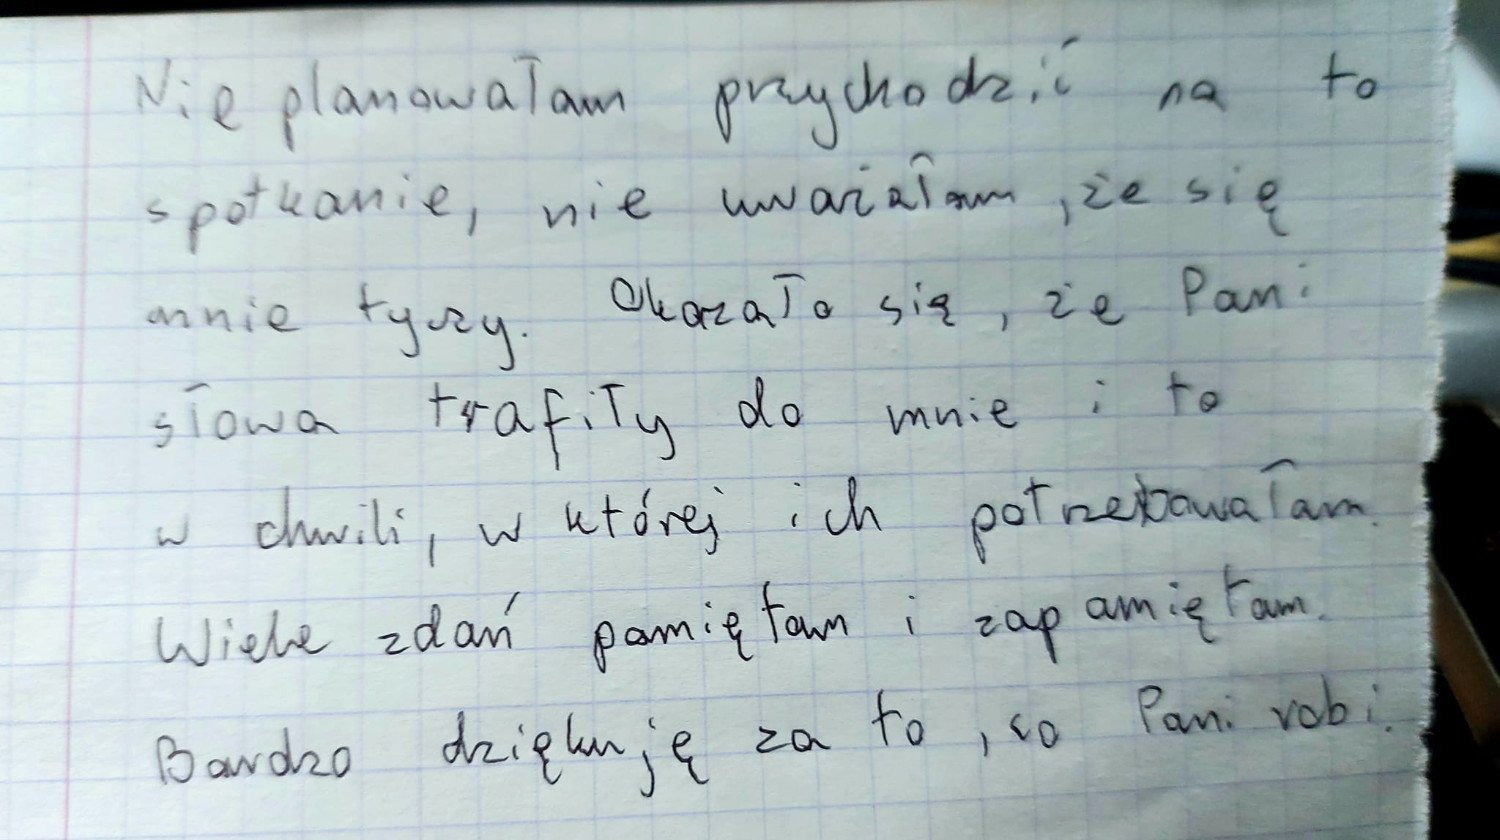 Nie planowałam przychodzić na to
spotkanie, nie uważałam, że się
mnie tyczy. Okazało się, że Pani
słowa trafiły do mnie i to
w chwili, w której ich potrzebowałam.
Wiele zdań pamiętam i zapamiętam.
Bardzo dziękuję za to, co Pani robi.